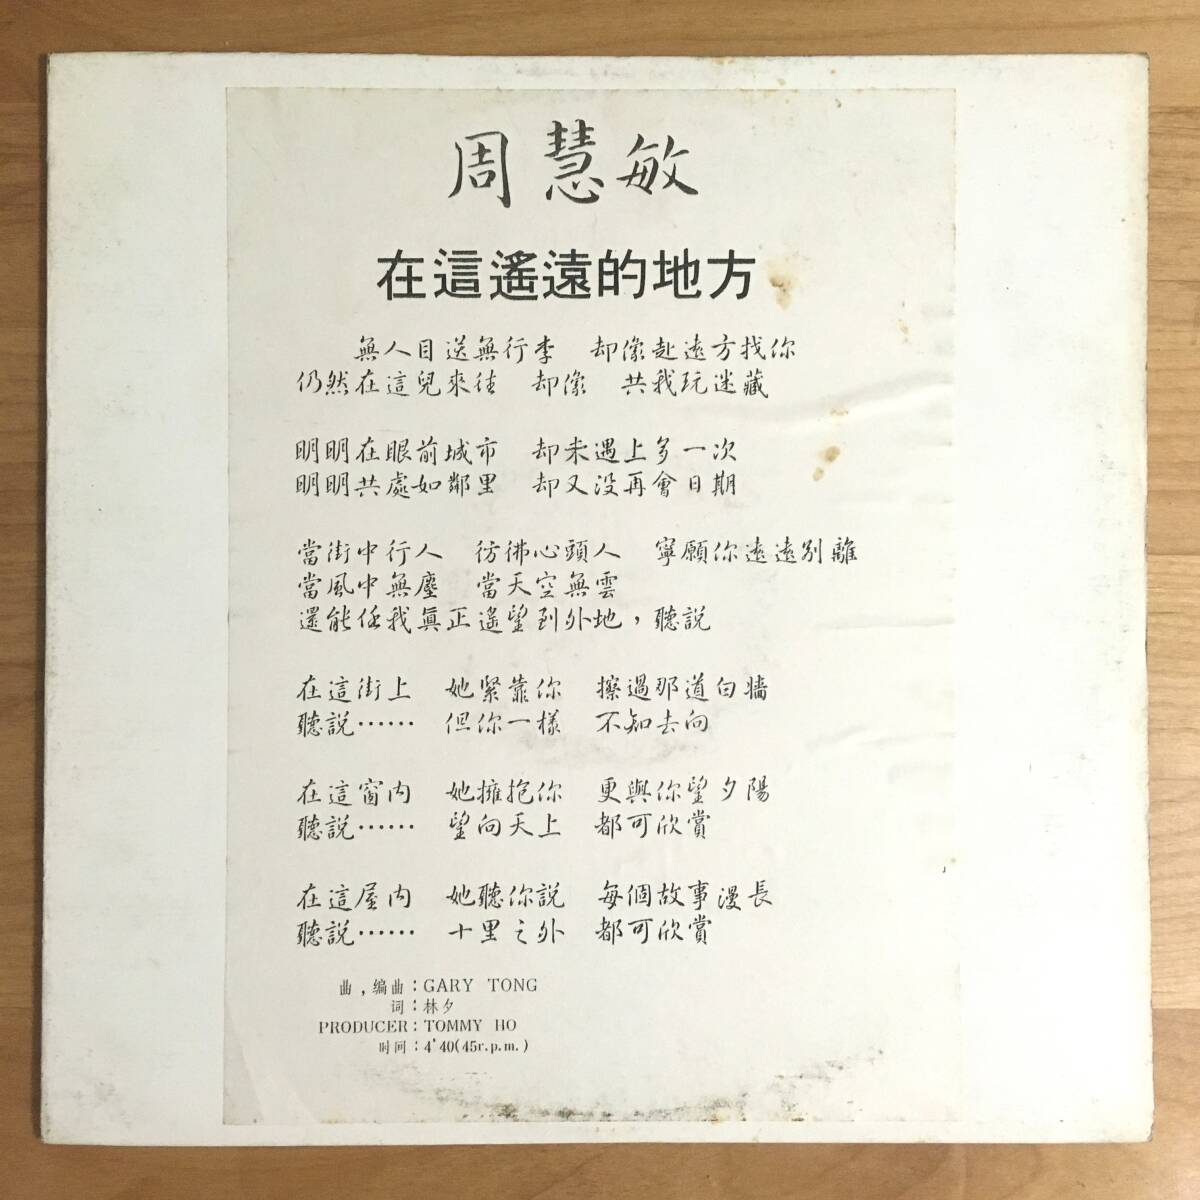 周慧敏
在這遙遠的地方
無人目送無行李　却像赴遠方找你
仍然在這兒來往　却像　共我玩迷藏
明明在眼前城市　却未遇上多一次
明明共處如鄰里　却又没再會日期
當街中行人　彷彿心頭人　寧願你遠遠別離
當風中無塵　當天空無雲
還能任我眞正遙望到外地，聽説
在這街上　她緊靠你　擦過那道白牆
聽説……　但你一樣　不知去向
在這窗内　她擁抱你　更與你望夕陽
聽説……　望向天上　都可欣賞
在這屋内　她聽你説　每個故事漫長
聽説……　十里之外　都可欣賞
曲，编曲：GARY TONG
词：林夕
PRODUCER：TOMMY HO
时间：4'40(45r.p.m.)